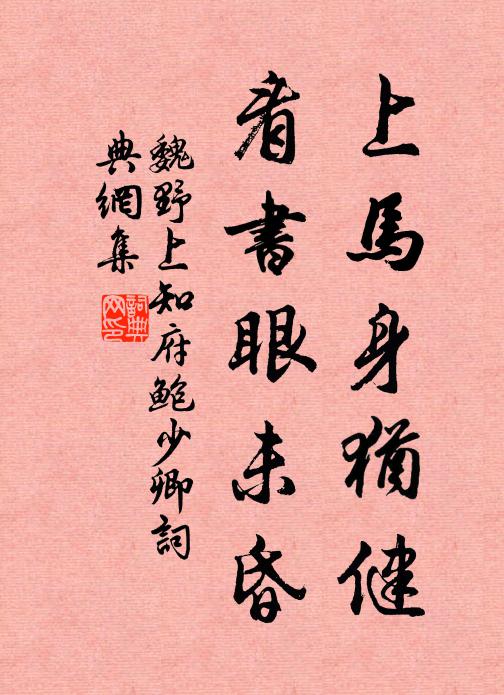 上馬身猶健
看書眼未昏
魏野上知府鮑少卿詞
典網集
詞典
网印